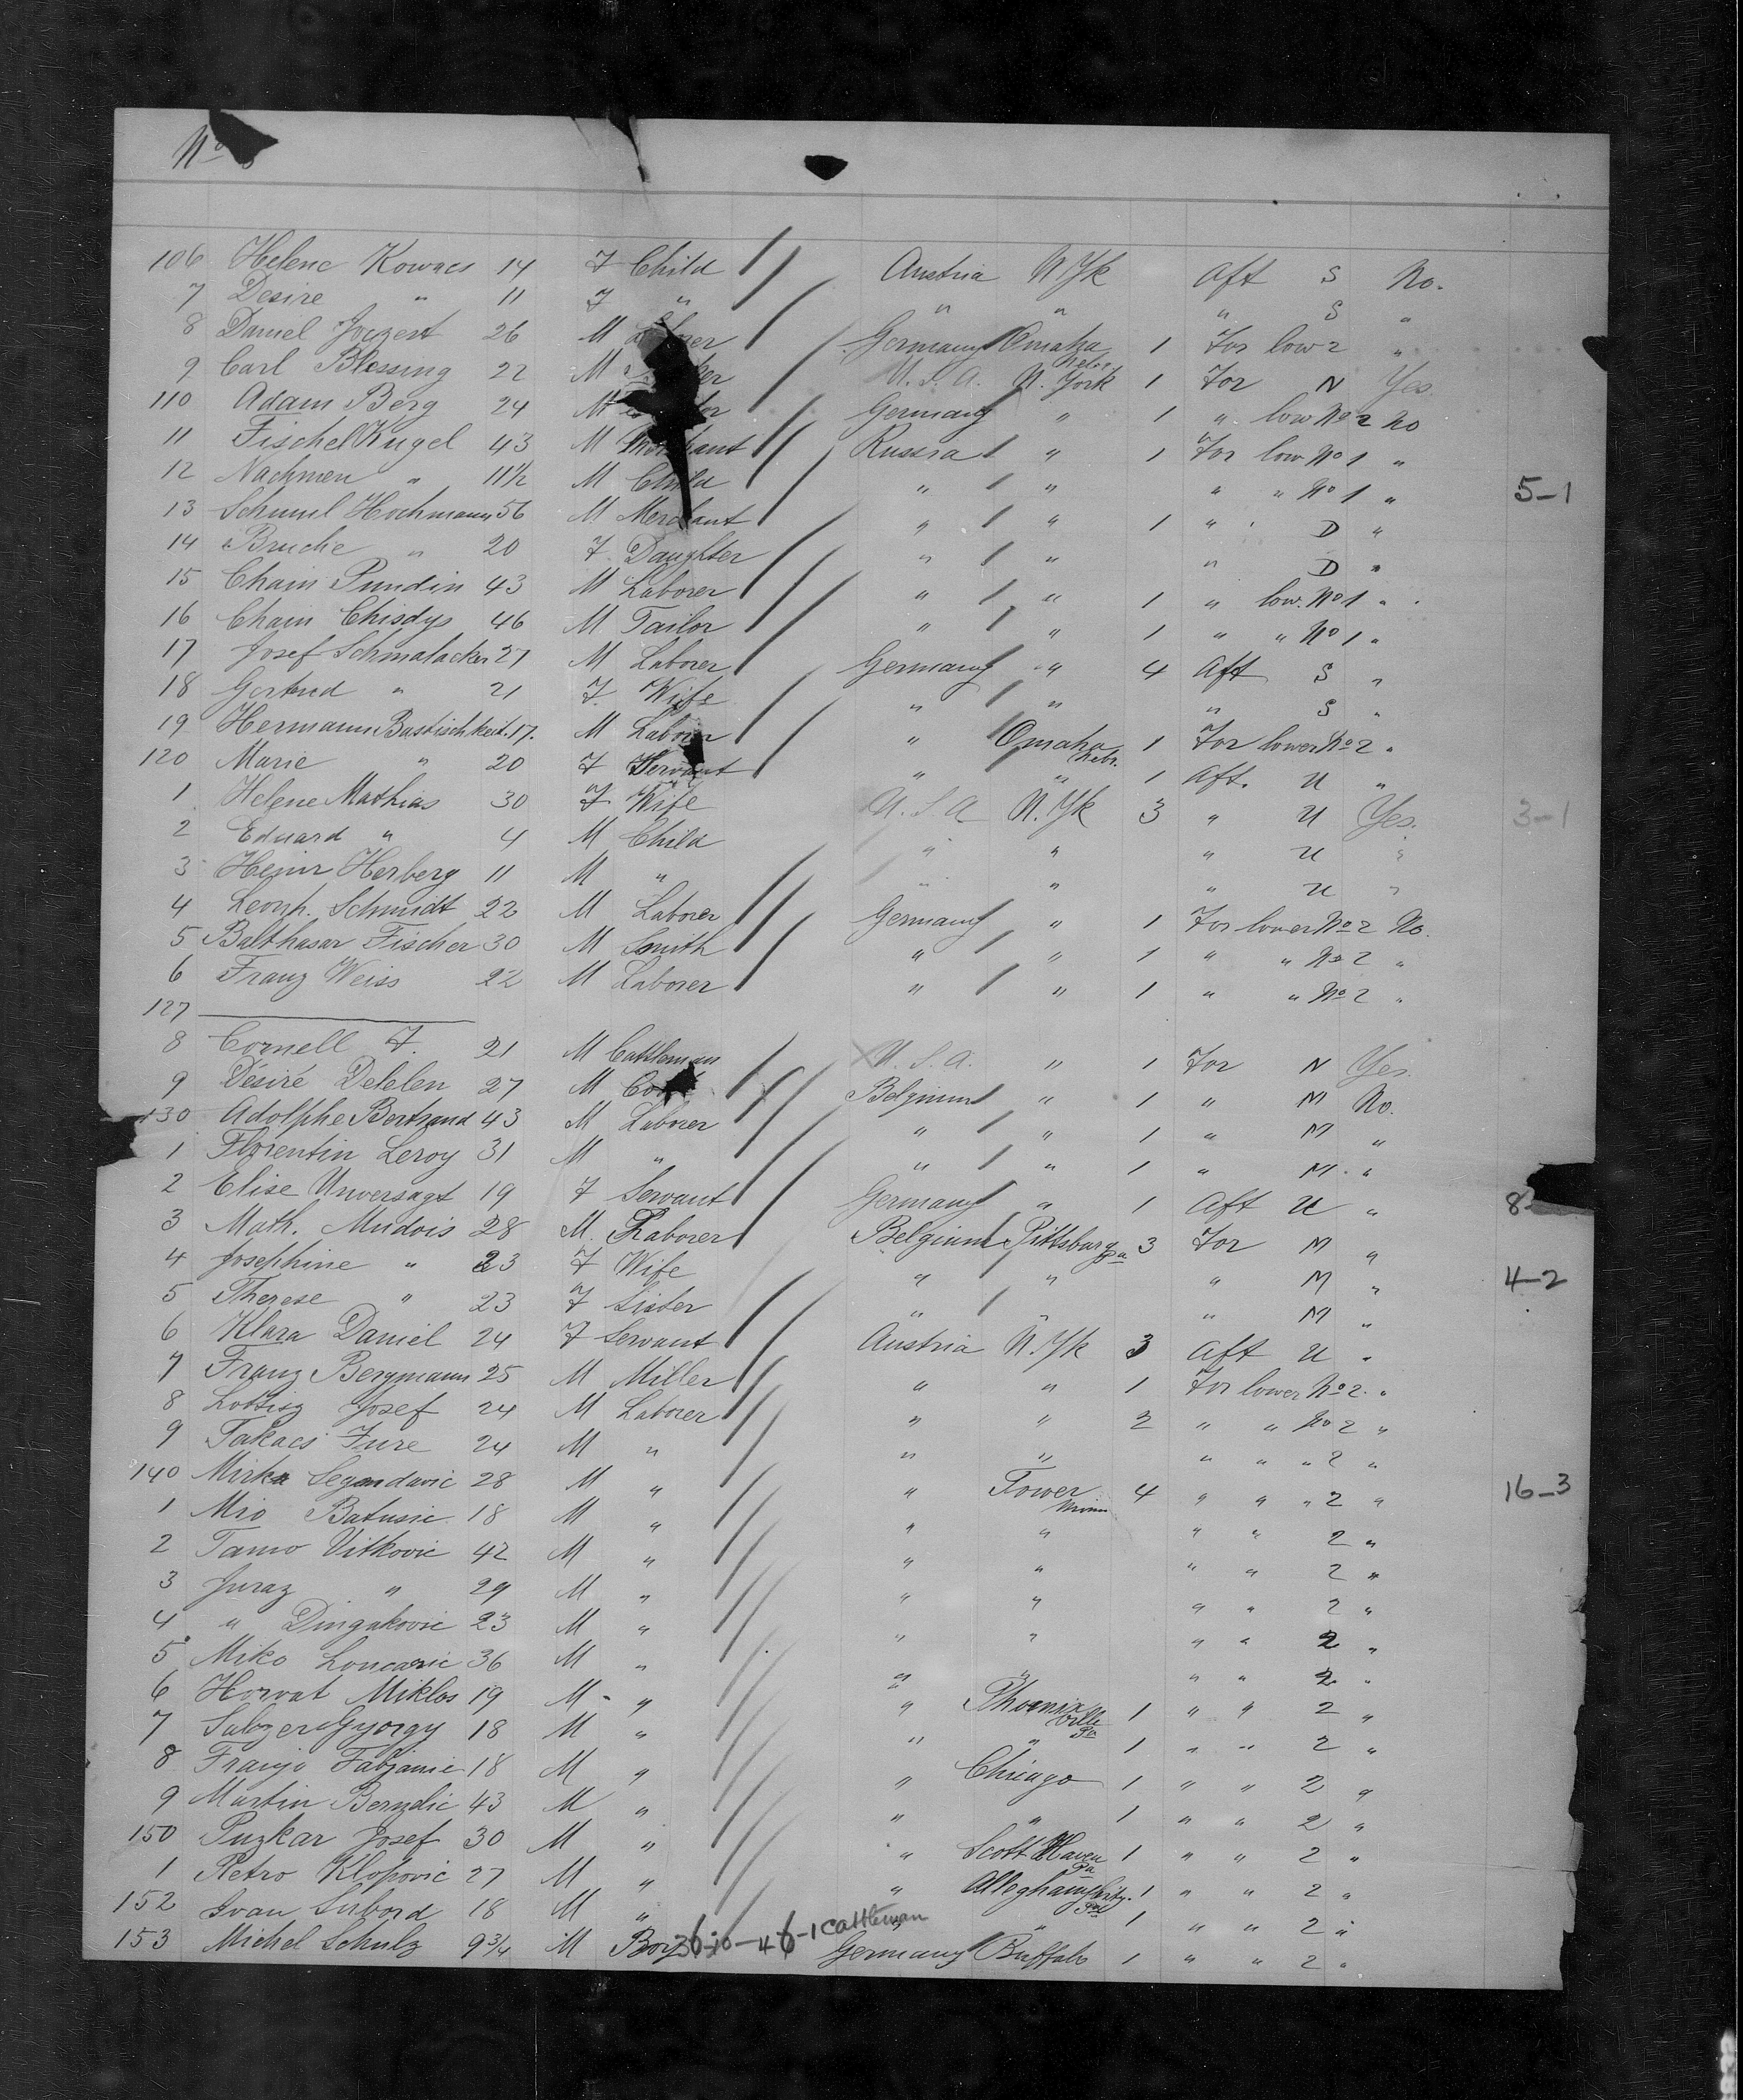 No
106 Helene Kowacs 14 F Child Austria N Yk Aft S No.
7 Desire " 11 F " " " " S "
8 Daniel 26 M Germany Omaha Nebr. 1 For low 2 "
9 Carl Blessing 22 M U.S.A. N. York 1 For N Yes.
110 Adam Berg 24 M Germany " 1 " low No 2 No
11 Fischel Kugel 43 M Merchant Russia " 1 For low No 1 "
12 Nachmen " 11 1/2 M Child " " " " No 1 " 5-1
13 Schmul Hochmann 56 M Merchant " " 1 " " D "
14 Bruche " 20 F Daughter " " " D "
15 Chain Pundin 43 M Laborer " " 1 " low. No 1 "
16 Chain Chisdys 46 M Tailor " " 1 " " No 1 "
17 Josef Schmalacker 27 M Laborer Germany " 4 Aft S "
18 Gertrud " 21 F Wife " " " S "
19 Hermann Bastischkeit 17. M Laborer " Omaha Nebr. 1 For lower No 2 "
120 Marie " 20 F Servant " " 1 Aft. U "
1 Helene Mathias 30 F Wife U.S.A N. Yk 3 " U Yes. 3-1
2 Eduard " 4 M Child " " " U "
3 Heinr Herberg 11 M " " " " U "
4 Leonh. Schmidt 22 M Laborer Germany " 1 For lower No 2 No.
5 Balthasar Fischer 30 M Smith " " 1 " " No 2 "
6 Franz Weiss 22 M Laborer " " 1 " " No 2 "
127
8 Cornell F. 21 M Cattleman U.S.A. " 1 For N Yes.
9 Désiré Delelen 27 M Belgium " 1 " M No.
130 Adolphe Bertrand 43 M Laborer " " 1 " M "
1 Florentin Leroy 31 M " " " 1 " M "
2 Elise Unversagt 19 F Servant Germany " 1 Aft U " 8
3 Math. Mudois 28 M. Laborer Belgium Pittsburg Pa 3 For M "
4 Josephine " 23 F Wife " " " M " 4-2
5 Therese " 23 F Sister " " " M "
6 Klara Daniel 24 F Servant Austria N. Yk 3 Aft U "
7 Franz Bergmann 25 M Miller " " 1 For lower No 2 "
8 Josef 24 M Laborer " " 2 " " No 2 "
9 Takacs Jure 24 M " " " " " " 2 "
140 Mirka Segandavic 28 M " " Tower Minn 4 " " " 2 " 16-3
1 Mio Batusic 18 M " " " " " 2 "
2 Tamo Vitkovic 42 M " " " " " 2 "
3 Juraz " 29 M " " " " " 2 "
4 " Dingakovic 23 M " " " " " 2 "
5 Miko Loncaric 36 M " " " " " 2 "
6 Horvat Miklos 19 M " " Phoenixville Pa 1 " " 2 "
7 Gyorgy 18 M " " " 1 " " 2 "
8 Franjo Fabjanic 18 M " " Chicago 1 " " 2 "
9 Martin Berzdic 43 M " " " 1 " " 2 "
150 Puzkar Josef 30 M " " Scott Haven Pa 1 " " 2 "
1 Petro Klopovic 27 M " " Allegheny City. Pa 1 " " 2 "
152 Ivan Subord 18 M " " " 1 " " 2 "
36-10-46-1 Cattleman
153 Michel Schulz 9 3/4 M Boy Germany Buffalo 1 " " 2 "